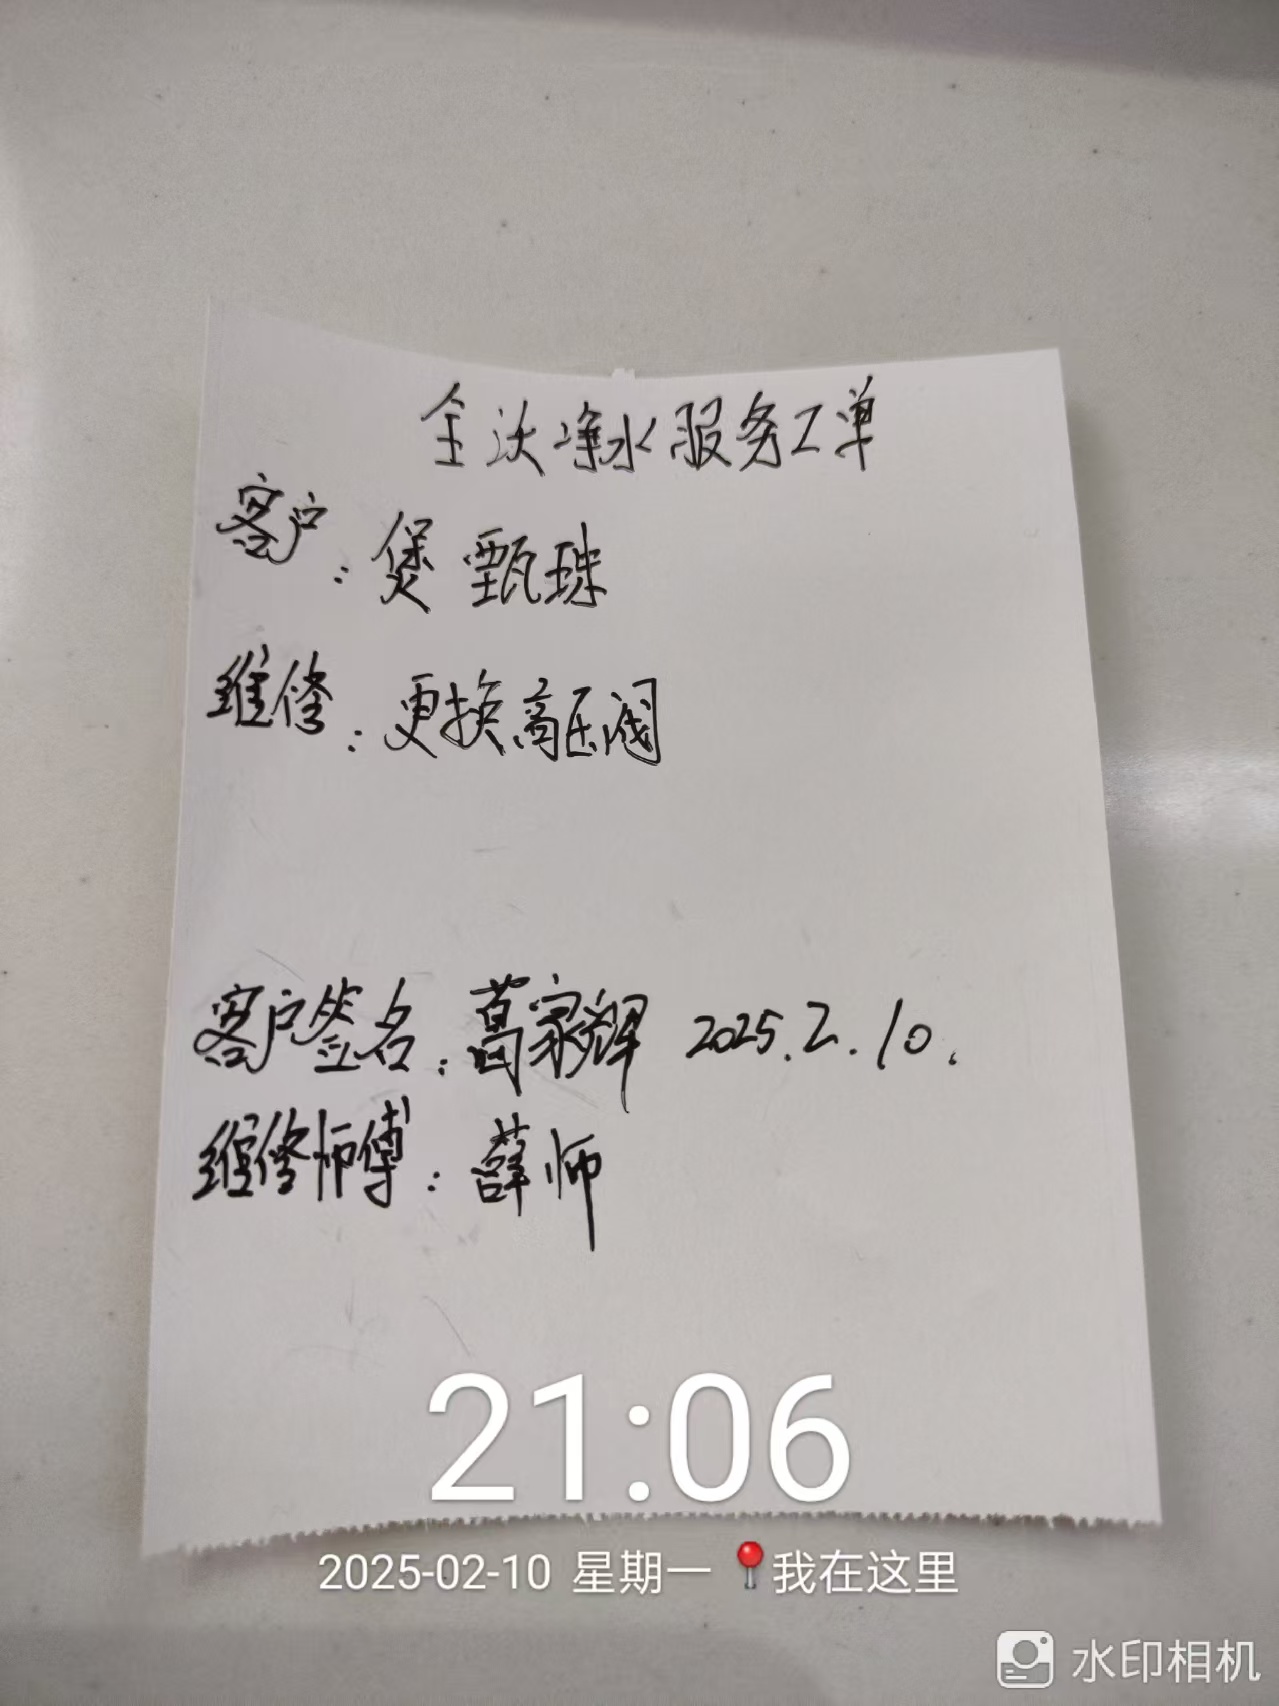 全沃净水服务工单
客户：煲甄珠
维修：更换高压阀
客户签名：葛家辉 2025.2.10.
维修师傅：薛师
21:06
2025-02-10 星期一 我在这里
水印相机